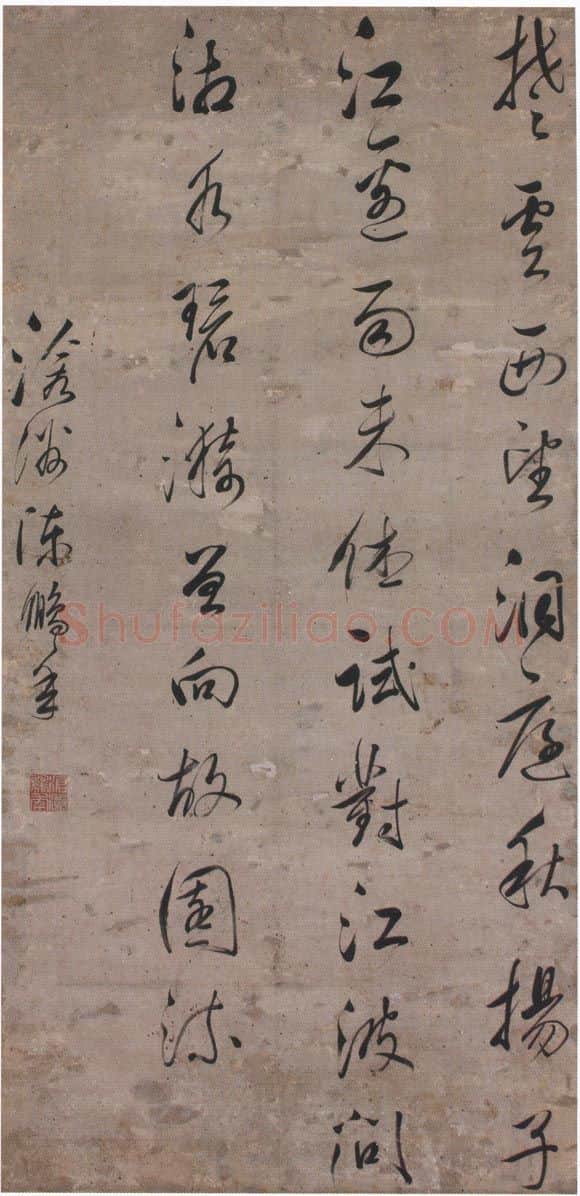 楚雲西望洞庭秋揚子
江邊雨未休試對江波問
湘水碧漪曾向故園流
滄洲陳鵬年
Shufaziliao.COM